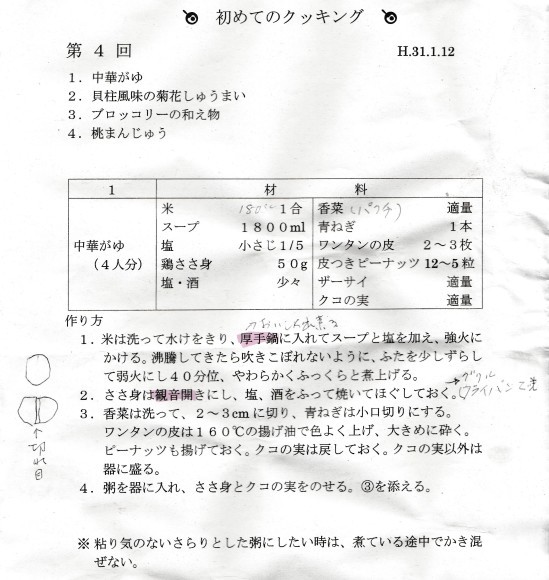 初めてのクッキング
第４回 H.31.1.12
１．中華がゆ
２．貝柱風味の菊花しゅうまい
３．ブロッコリーの和え物
４．桃まんじゅう
１ 材料
中華がゆ
（４人分）
米 180cc １合 香菜(パクチ) 適量
スープ １８００ml 青ねぎ １本
塩 小さじ1/5 ワンタンの皮 ２～３枚
鶏ささ身 ５０g 皮つきピーナッツ 12～5粒
塩・酒 少々 ザーサイ 適量
クコの実 適量
作り方
１．米は洗って水けをきり、厚手鍋に入れてスープと塩を加え、強火に
かける。沸騰してきたら吹きこぼれないように、ふたを少しずらし
て弱火にし４０分位、やわらかくふっくらと煮上げる。
２．ささ身は観音開きにし、塩、酒をふって焼いてほぐしておく。
→グリル
フライパン
３．香菜は洗って、２～３cmに切り、青ねぎは小口切りにする。
ワンタンの皮は１６０℃の揚げ油で色よく上げ、大きめに砕く。
ピーナッツも揚げておく。クコの実は戻しておく。クコの実以外は
器に盛る。
４．粥を器に入れ、ささ身とクコの実をのせる。③を添える。
↑切れ目
※粘り気のないさらりとした粥にしたい時は、煮ている途中でかき混
ぜない。